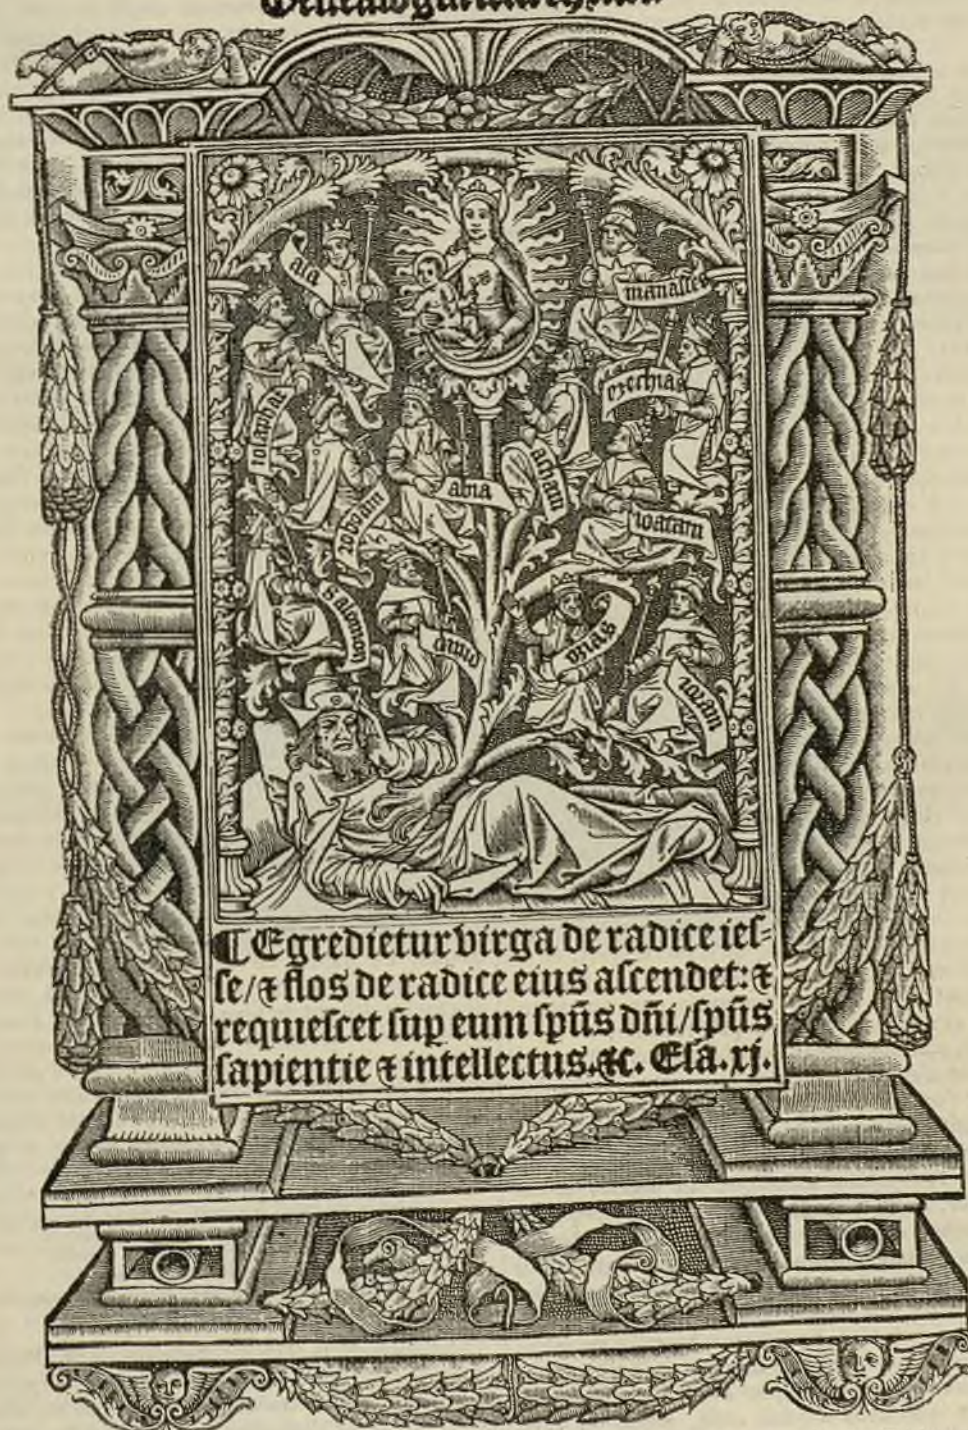 aſa
manaſſe
ezechias
ioſaphat
roboam
abia
acham
ioatam
Salomon
dauid
ozias
ioram
¶ Egredietur virga de radice ieſ-
ſe/⁊ flos de radice eius aſcendet:⁊
requieſcet ſuꝑ eum ſpūs dn̄i/ſpūs
ſapientie ⁊ intellectus.⁊c. Eſa.xj.